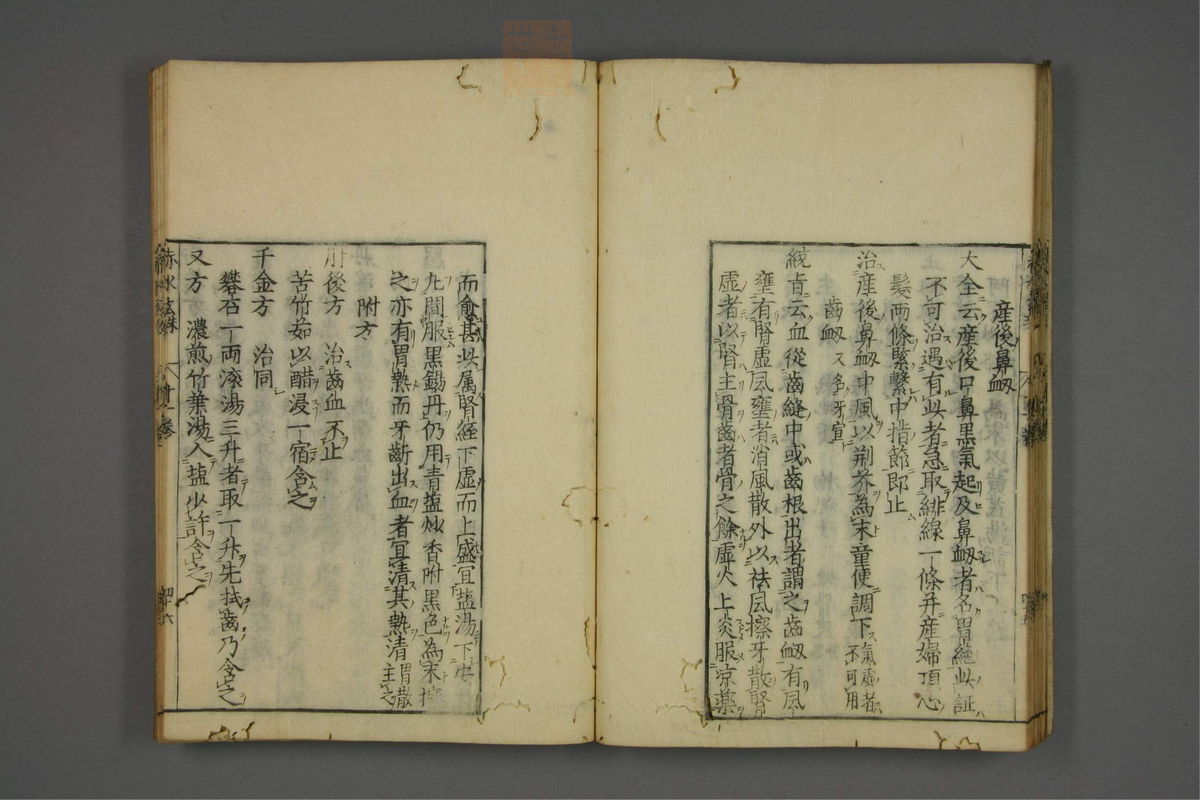 産後鼻衂
大全云産後口鼻黒氣起及鼻衂者名胃絶此証
不可治遇有此者急取緋線一條并産婦頂心
髪兩條緊繫中指節即止
治産後鼻衂中風以荆芥為末童便調下氣虚者不可用
齒衂 又名牙宣
統旨云血從齒縫中或齒根出者謂之齒衂有風
壅有腎虚風壅者消風散外以祛風擦牙散腎
虚者以腎主骨齒者骨之餘虚火上炎服凉藥
而愈甚此属腎経下虚而上盛宜盐湯下安
九間服黒錫丹仍用青盐炒香附黒色為末擦
之亦有胃熱而牙齗出血者宜清其熱清胃散主之
附方
肘後方 治齒血不止
苦竹茹以醋浸一宿含之
千金方 治同
礬石一両滚湯三升煮取一升先拭齒乃含之
又方 濃煎竹葉湯入盐少許含之
赤水玄珠